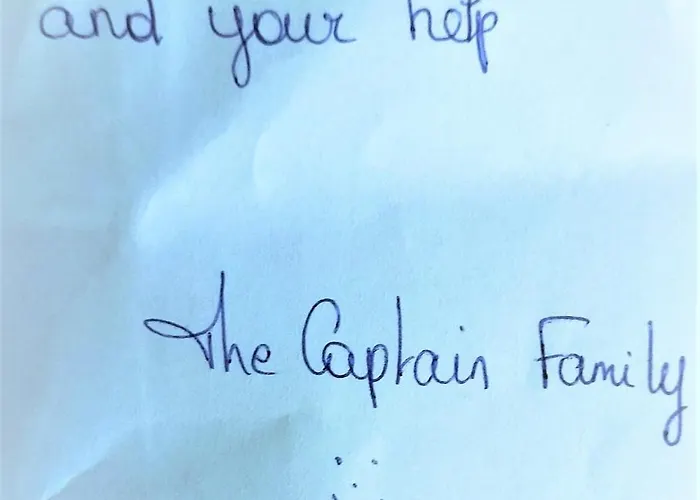 and your help
The Captain Family